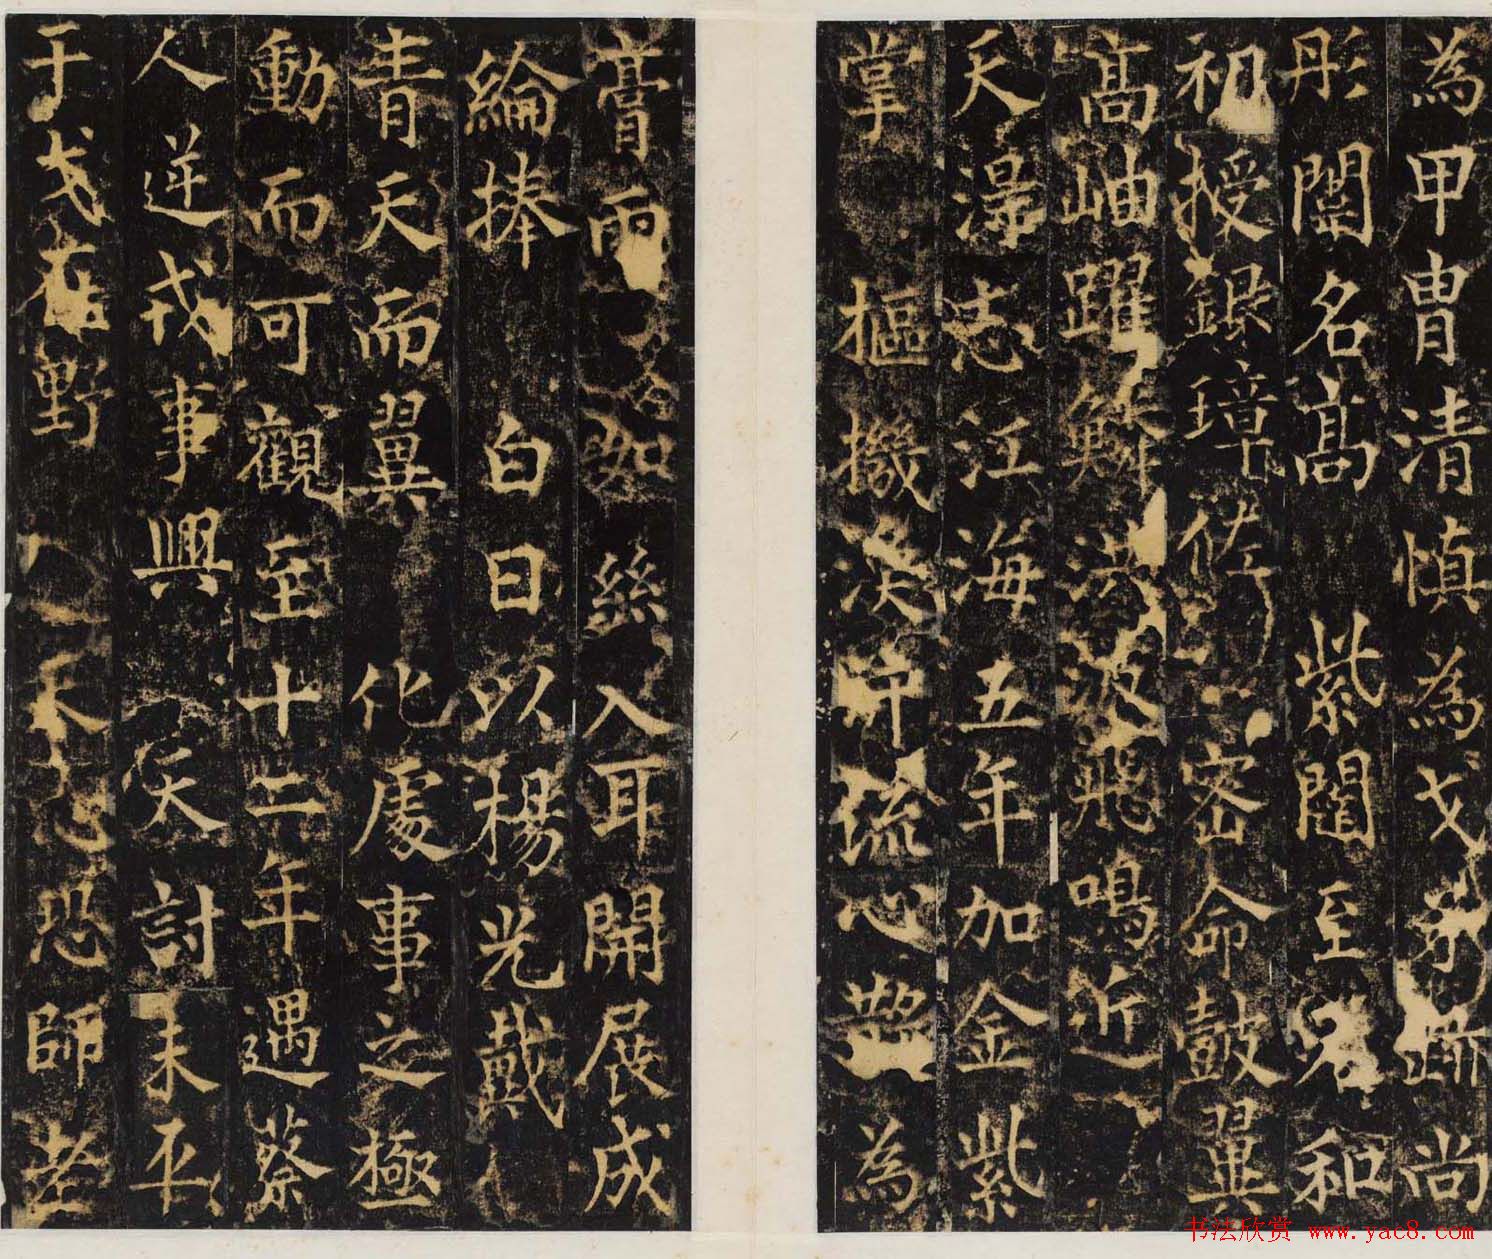 為甲冑清慎為戈矛蹄尚
彤闈名高 紫闥至君和
初授銀璋佐 密命鼓翼
高岫躍鱗洪波飛鳴近
天瀑志江海五年加金紫
掌樞機決守流心 為
膏雨如 絲入耳開展成
綸捧 白日以楊光戴
青天而翼 化處事之極
動而可觀至十二年遇蔡
人逆戎事興 天討未平
干戈在野 不 恐師老
书法欣赏 www.yac8.com